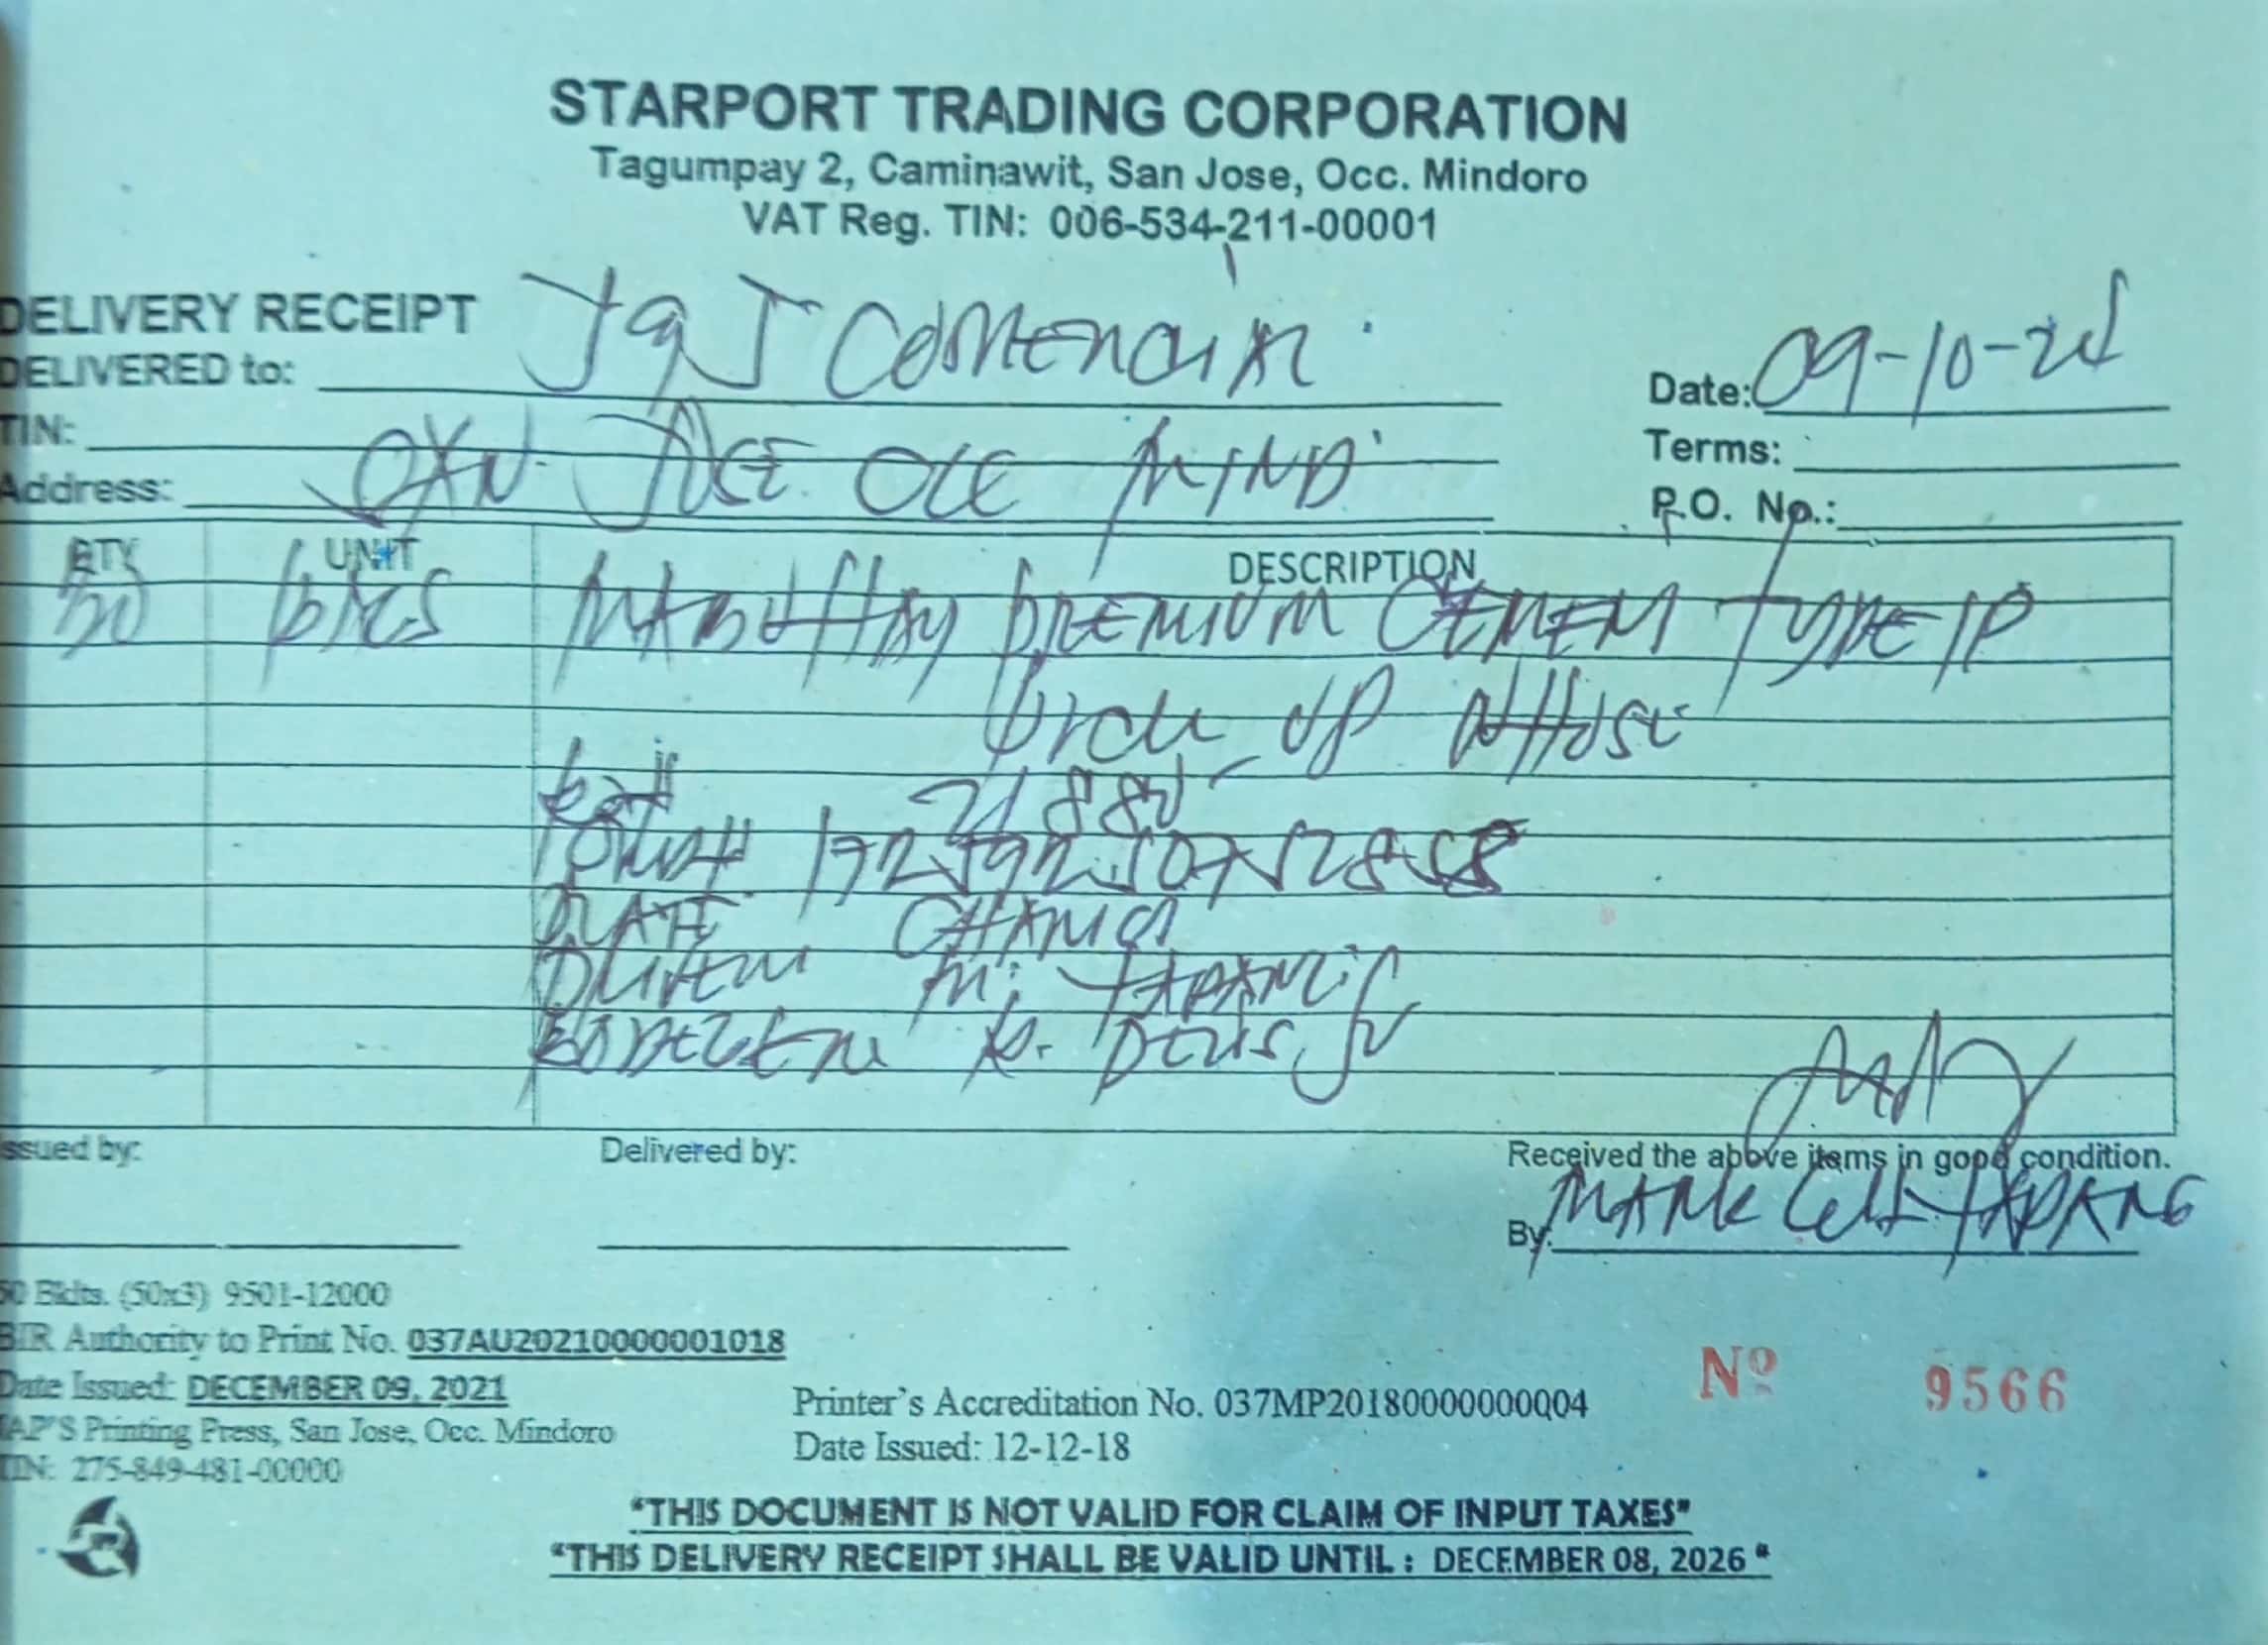 STARPORT TRADING CORPORATION
Tagumpay 2, Caminawit, San Jose, Occ. Mindoro
VAT Reg. TIN: 006-534-211-00001
DELIVERY RECEIPT
DELIVERED to: J&J
Date: 09-10-24
TIN:
Terms:
Address: SAN JOSE OCC MIND
P.O. No.:
QTY UNIT DESCRIPTION
BAGS MABUHAY PREMIUM CEMENT TYPE 1P
PICK UP WHOSE
PLATE
M. TAPANG
Received the above items in good condition.
ssued by:
Delivered by:
By: MARK TAPANG
50 Bklts. (50x3) 9501-12000
BIR Authority to Print No. 037AU20210000001018
Date Issued: DECEMBER 09, 2021
AP'S Printing Press, San Jose, Occ. Mindoro
TIN: 275-849-481-00000
Printer's Accreditation No. 037MP20180000000004
Date Issued: 12-12-18
Nº 9566
"THIS DOCUMENT IS NOT VALID FOR CLAIM OF INPUT TAXES"
"THIS DELIVERY RECEIPT SHALL BE VALID UNTIL : DECEMBER 08, 2026"